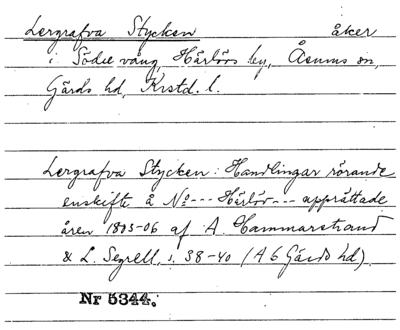 Lergrafva Stycken åker
i Södre vång, Härlövs by, Åsums sn,
Gärds hd, Krstd. l.
Lergrafva Stycken: Handlingar rörande
enskifte å No --- Härlöv --- upprättade
åren 1805-06 af A. Hammarstrand
& L. Segrell, s. 38-40 (A 6 Gärds hd).
Nr 5344.